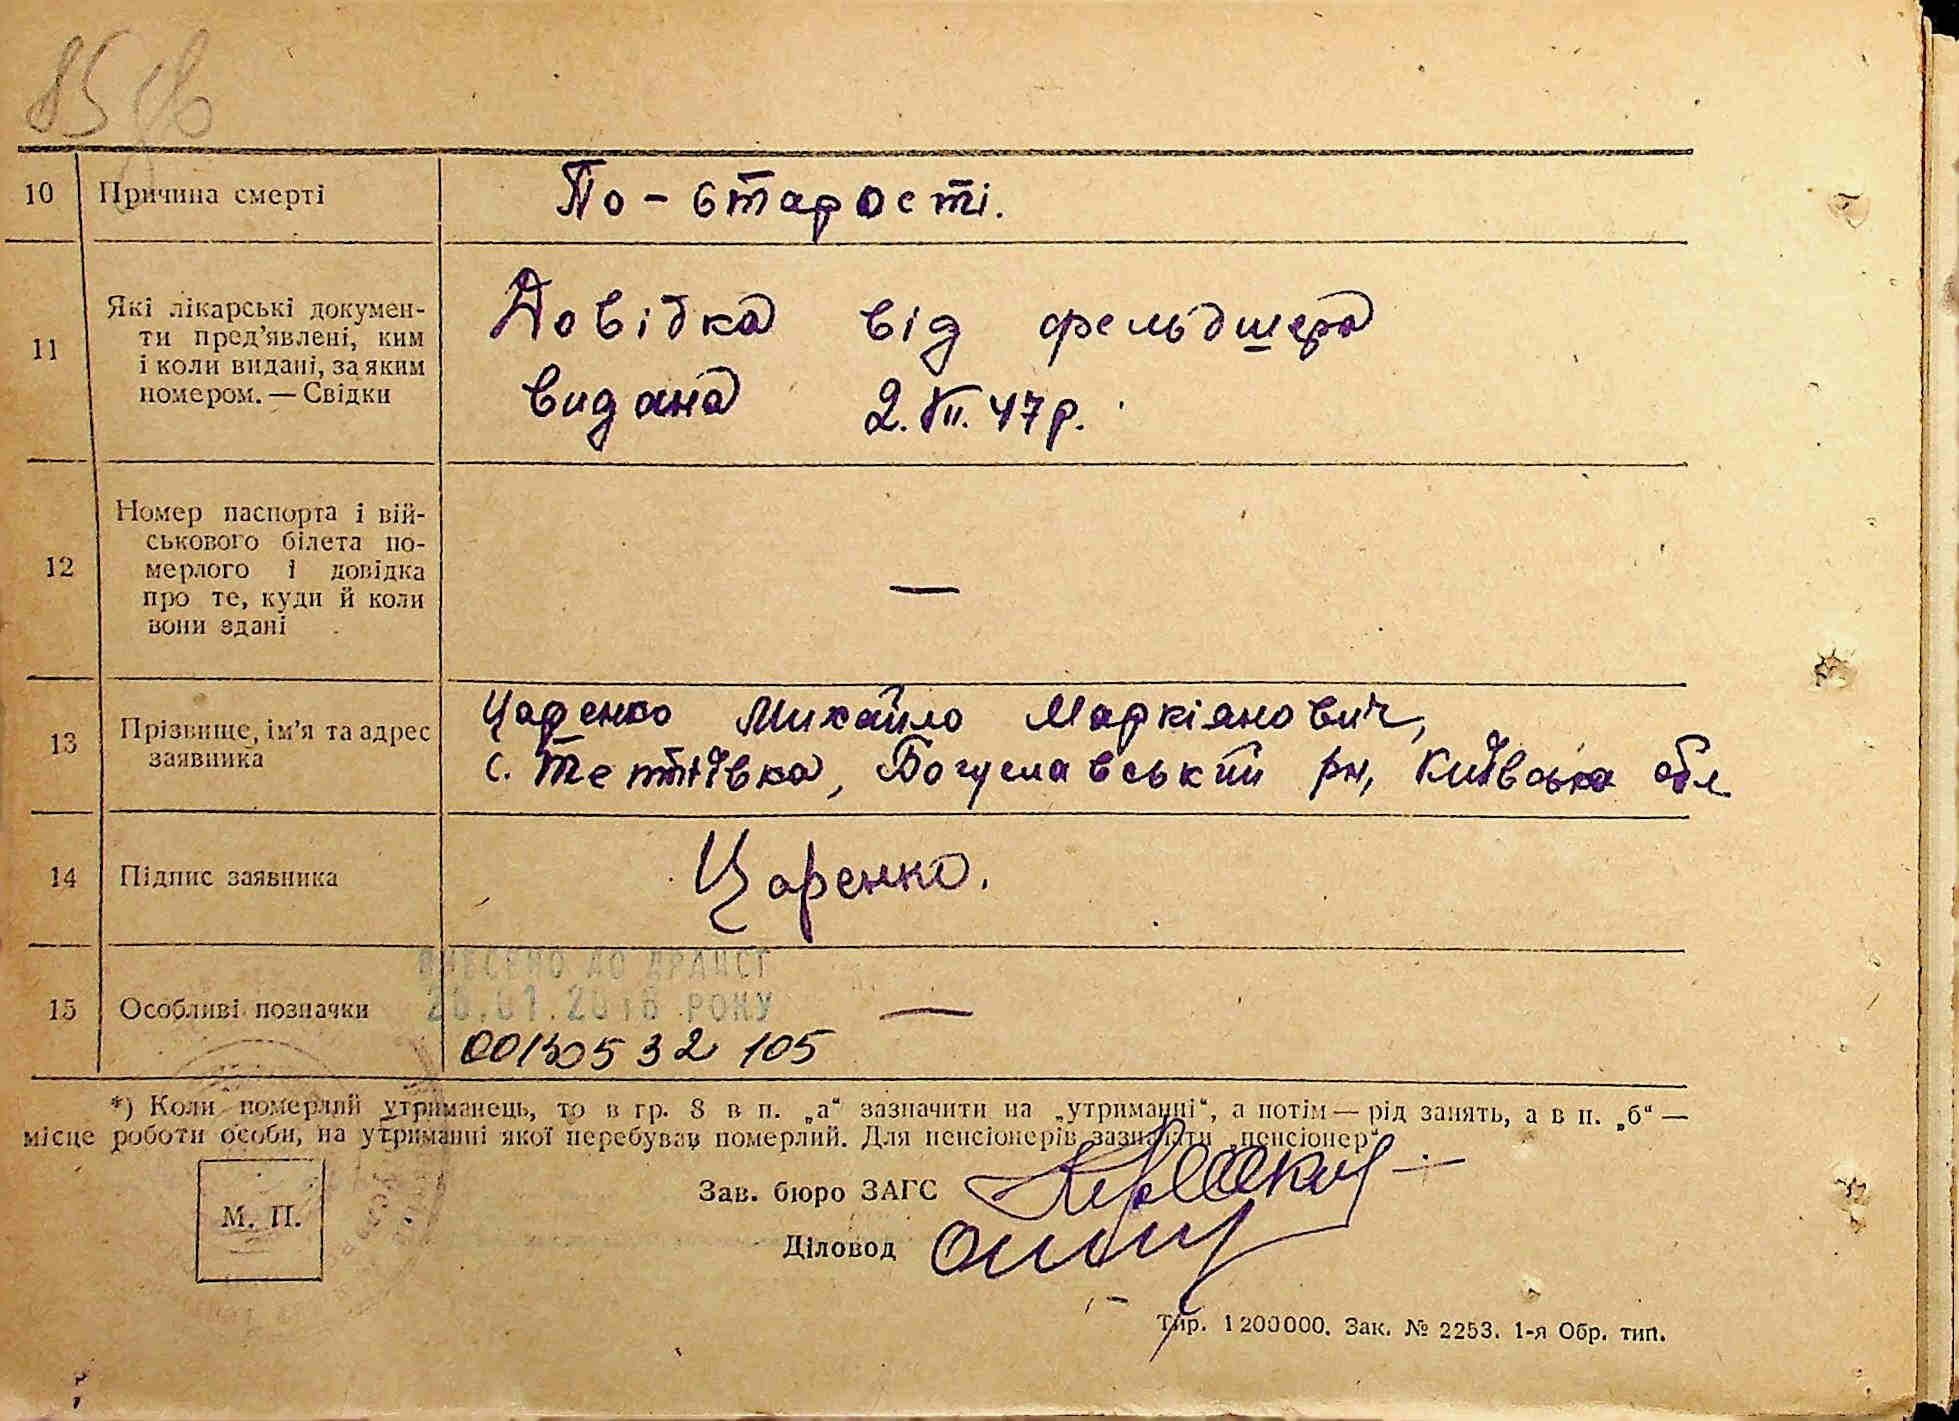 85
10 Причина смерті По-старості.
11 Які лікарські докумен-
ти пред'явлені, ким
і коли видані, за яким
номером. — Свідки
Довідка від фельдшера
видана 2.VII.47р.
12 Номер паспорта і вій-
ськового білета по-
мерлого і довідка
про те, куди й коли
вони здані
—
13 Прізвище, ім'я та адрес
заявника
Царенко Михайло Маркіянович,
с. Тептіївка, Богуславський рн, Київська обл.
14 Підпис заявника Царенко.
ВНЕСЕНО ДО ДРАЦСГ
15 Особливі позначки 20.01.2016 РОКУ —
00130532105
*) Коли померлий утриманець, то в гр. 8 в п. „а“ зазначити на „утриманні“, а потім — рід занять, а в п. „б“ —
місце роботи особи, на утриманні якої перебував померлий. Для пенсіонерів зазначати „пенсіонер“.
Зав. бюро ЗАГС
М. П.
Діловод
Тир. 1200000. Зак. № 2253. 1-я Обр. тип.